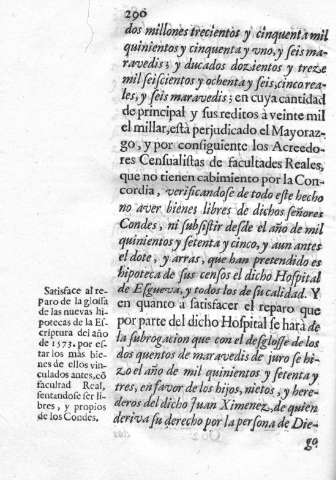 296
dos millones trecientos y cinquenta mil
quinientos y cinquenta y vno, y seis ma-
ravedis; y ducados dozientos y treze
mil seiscientos y ochenta y seis, cinco rea-
les, y seis maravedis; en cuya cantidad
de principal y sus reditos à veinte mil
el millar, està perjudicado el Mayoraz-
go, y por consiguiente los Acreedo-
res Censualistas de facultades Reales,
que no tienen cabimiento por la Con-
cordia, verificandose de todo este hecho
no aver bienes libres de dichos señores
Condes, ni subsistir desde el año de mil
quinientos y setenta y cinco, y aun antes
el dote, y arras, que han pretendido es
hipoteca de sus censos el dicho Hospital
de Esgueva, y todos los de su calidad. Y
en quanto à satisfacer el reparo que
por parte del dicho Hospital se harà de
la subrogacion que con el desglose de los
dos quentos de maravedis de juro se hi-
zo el año de mil quinientos y setenta y
tres, en favor de los hijos, nietos, y here-
deros del dicho Juan Ximenez, de quien
deriva su derecho por la persona de Die-
go
Satisface al re-
paro de la glossa
de las nuevas hi-
potecas de la Es-
criptura del año
de 1573. por es-
tar los mas bie-
nes de ellos vin-
culados antes, cõ
facultad Real,
sentandose ser li-
bres, y propios
de los Condes.